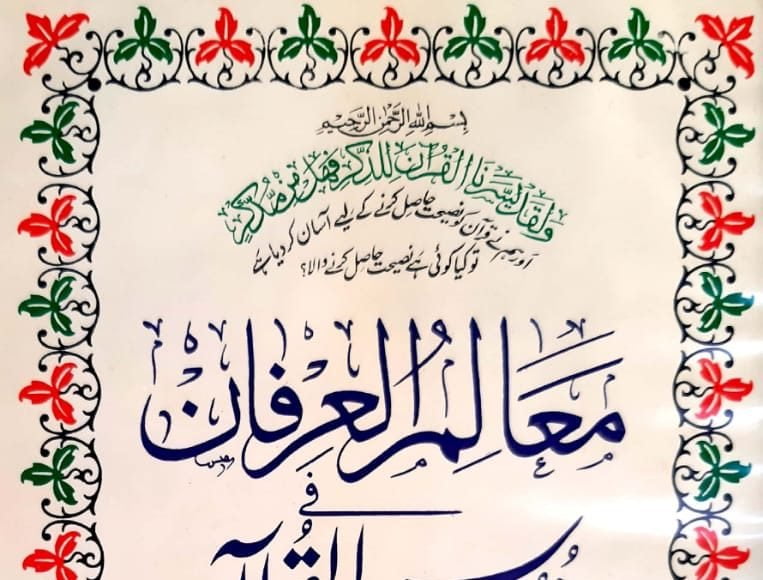 بِسْمِ اللهِ الرَّحْمٰنِ الرَّحِيْمِ
وَلَقَدْ يَسَّرْنَا الْقُرْآنَ لِلذِّكْرِ فَهَلْ مِنْ مُّدَّكِرٍ
اور ہم نے قرآن کو نصیحت حاصل کرنے کے لیے آسان کر دیا ہے
تو کیا کوئی ہے نصیحت حاصل کرنے والا؟
مَعَالِمُ الْعِرْفَان
فِي
القُرآن